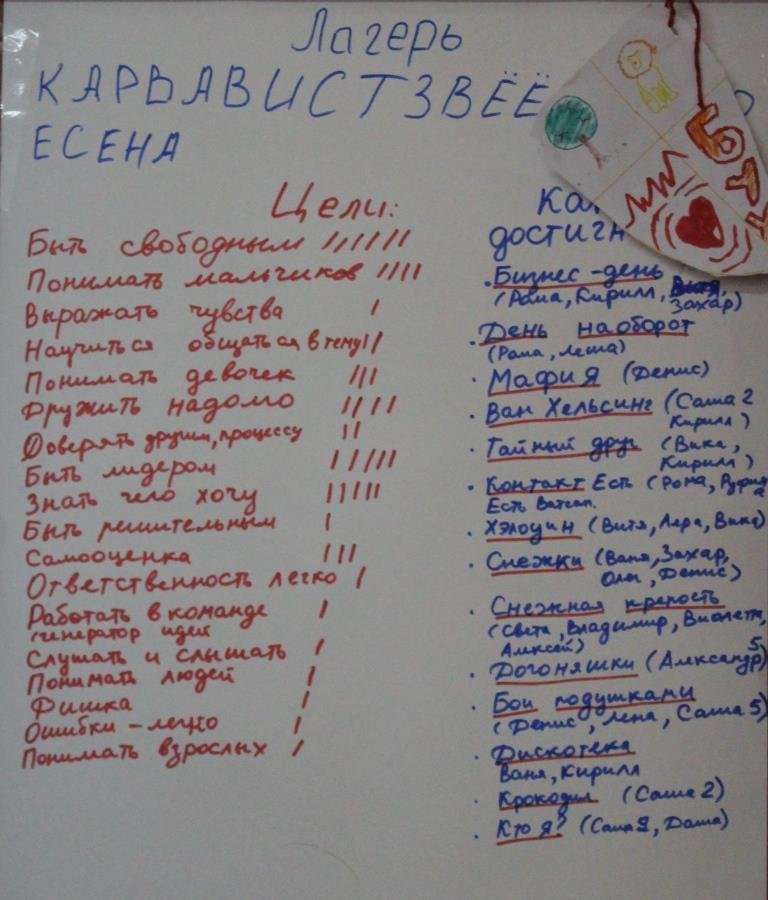 Лагерь
КАРВАВИСТЗВЁЁ
ЕСЕНА
Цели:
Быть свободным //////
Понимать мальчиков ////
Выражать чувства /
Научиться общаться в тему //
Понимать девочек ///
Дружить надолго ////
Доверять другим, процессу //
Быть лидером /////
Знать чего хочу /////
Быть решительным /
Самооценка ///
Ответственность легко /
Работать в команде /
/генератор идей
Слушать и слышать /
Понимать людей /
Фишка /
Ошибки - легко /
Понимать взрослых /
Ка
достигн
• Бизнес-день
(Рома, Кирилл,
Захар)
• День наоборот
(Рома, Леша)
• Мафия (Денис)
• Ван Хельсинг (Саша 2
Кирилл)
• Тайный друг (Вика,
Кирилл)
• Контакт Есть (Рома,
Есть Ватсап.
• Хэлоуин (Витя, Лера, Вика)
• Снежки (Ваня, Захар,
Олег, Денис)
• Снежная крепость
(Света, Владимир, Виолетта,
Алексей)
• Догоняшки (Александр 5)
• Бои подушками
(Денис, Лена, Саша 5)
• Дискотека
Ваня, Кирилл
• Крокодил (Саша 2)
• Кто я? (Саша Я, Даша)